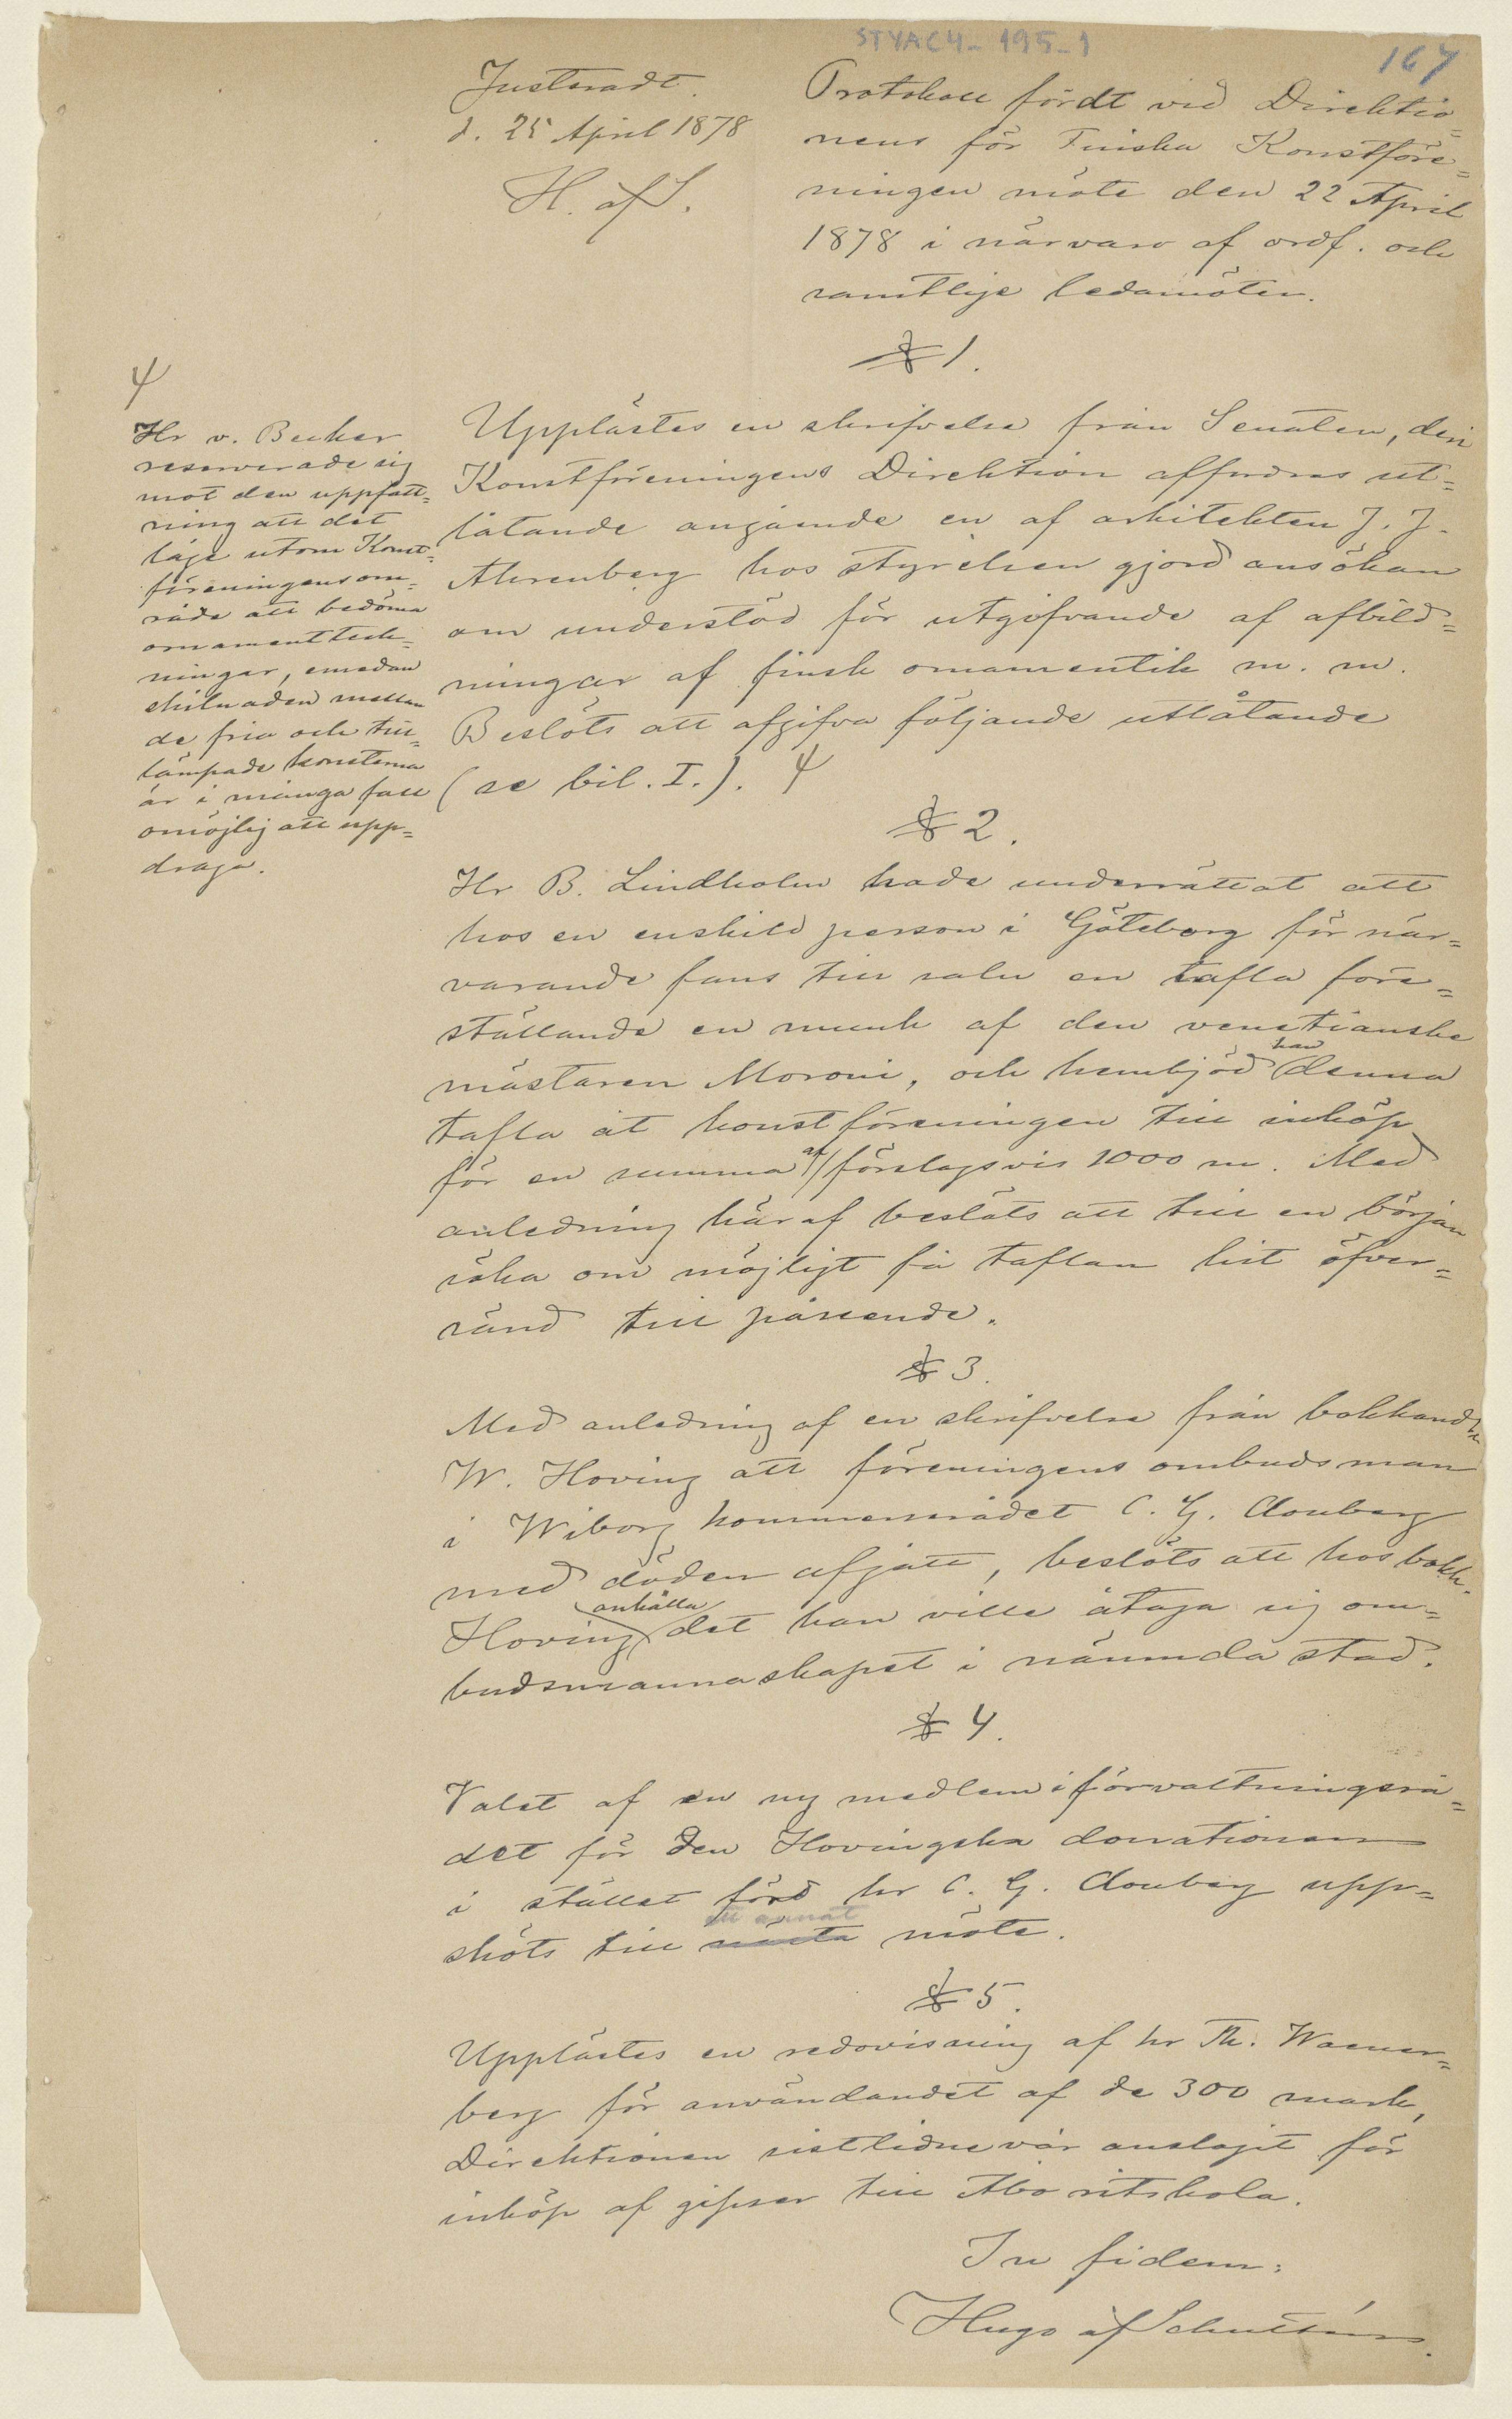 STYAC4-195-1
167
Justeradt.
d. 25 April 1878
H. af S.
Protokoll fördt vid Direktio=
nens för Finska Konstföre=
ningen möte den 22 April
1878 i närvaro af ordf. och
samtlige ledamöter.
§ 1.
Upplästes en skrifvelse från Senaten, deri
Konstföreningens Direktion affordras ut=
låtande angående en af arkitekten J. J.
Ahrenberg hos styrelsen gjord ansökan
om understöd för utgifvande af afbild=
ningar af finsk ornamentik m. m.
Beslöts att afgifva följande utlåtande
(se bil. I.). ψ
ψ
Hr v. Becker
reserverade sig
mot den uppfatt=
ning att det
låge utom Konst=
föreningens om=
råde att bedöma
ornamentteck=
ningar, emedan
skilnaden mellan
de fria och till=
lämpade konsterna
är i många fall
omöjlig att upp=
draga.
§ 2.
Hr B. Lindholm hade underrättat att
hos en enskild person i Göteborg för när=
varande fans till salu en tafla före=
ställande en munk af den venetianske
mästaren Moroni, och hembjöd han denna
tafla åt konstföreningen till inköp
för en summa af förslagsvis 1000 m. Med
anledning häraf beslöts att till en början
söka om möjligt få taflan hit öfver=
sänd till påseende.
§ 3.
Med anledning af en skrifvelse från bokhandl.
W. Hoving att föreningens ombudsman
i Wiborg kommerserådet C. G. Clouberg
med döden afgått, beslöts att hos bokh.
Hoving anhålla det han ville åtaga sig om=
budsmannaskapet i nämnda stad.
§ 4.
Valet af en ny medlem i förvaltningsrå=
det för den Hovingska donationen
i stället för hr C. G. Clouberg upp=
sköts till nästa ett annat möte.
§ 5.
Upplästes en redovisning af hr Th. Waener=
berg för användandet af de 300 mark,
Direktionen sistlidne vår anslagit för
inköp af gipser till Åbo ritskola.
In fidem:
Hugo af Schultén.